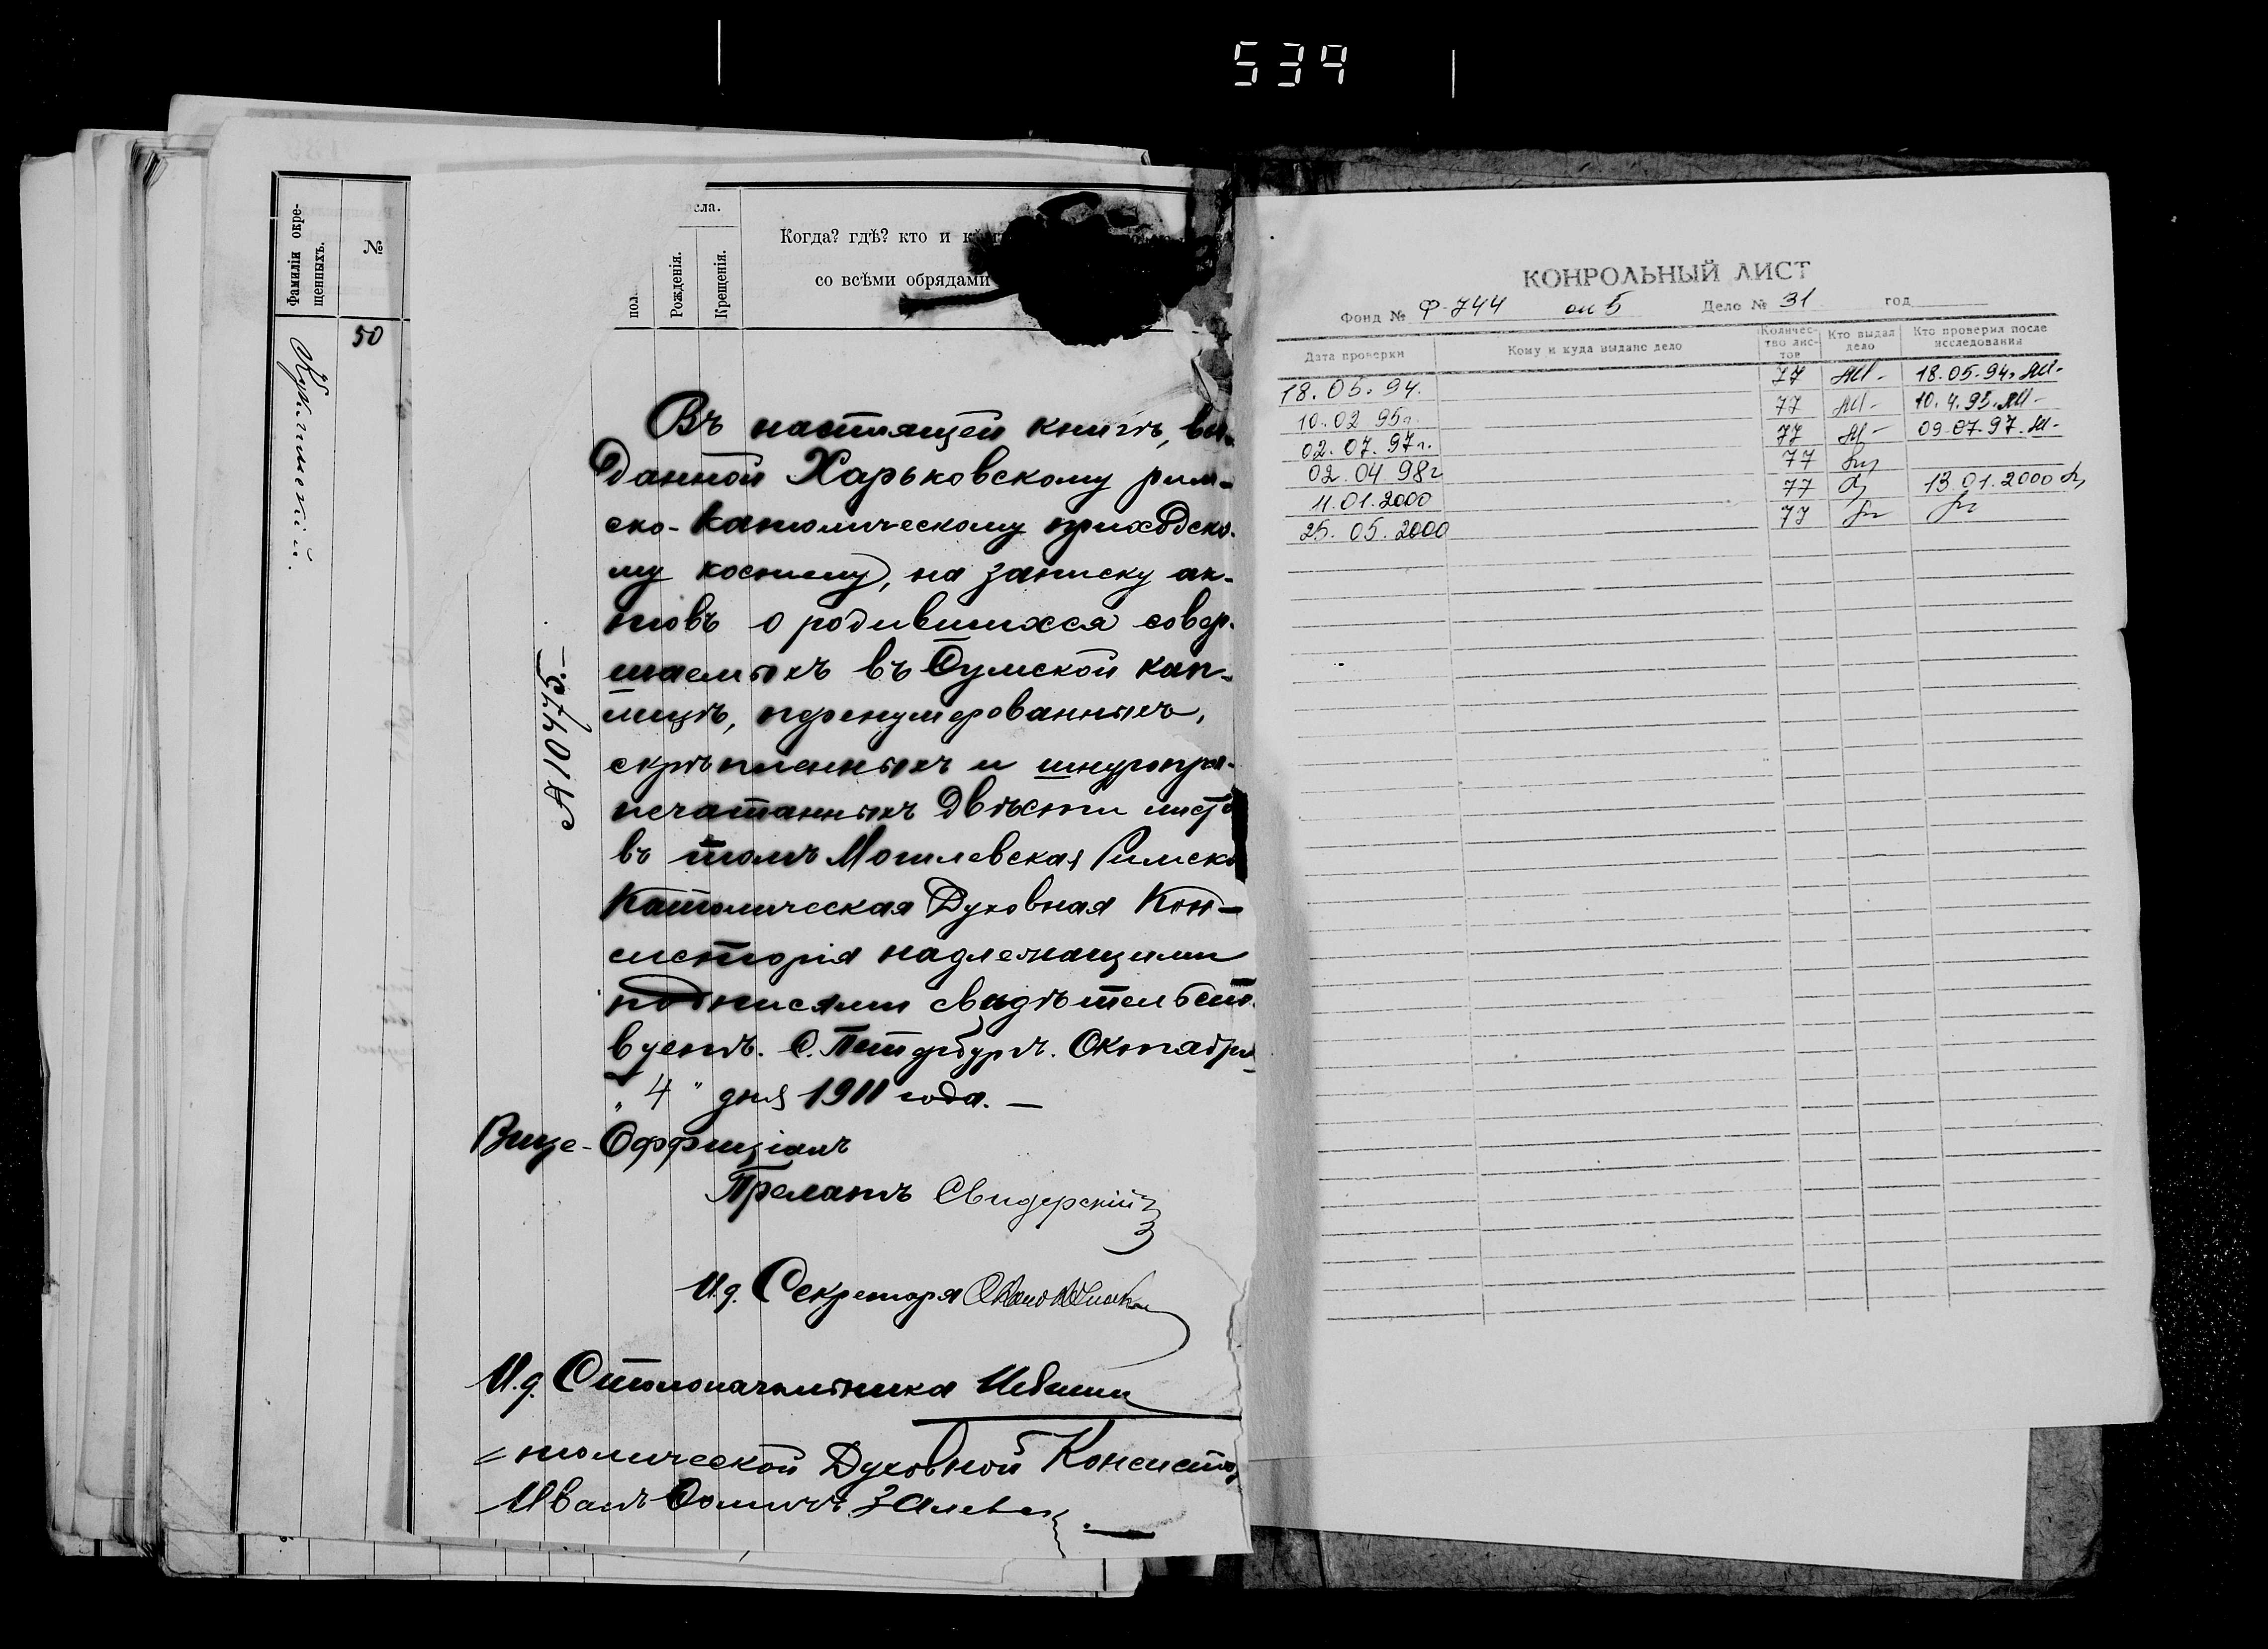 534
Фамиліи окре-
щенныхъ.
№
50
сла.
пол.
Рожденія.
Крещенія.
Когда? гдѣ? кто и
со всѣми обрядами
№ 10475.
Въ настоящей книгѣ, вы-
данной Харьковскому рим-
ско-католическому приходско-
му костелу, на записку ак-
товъ о родившихся совер-
шаемыхъ въ Сумской кап-
лицѣ, перенумерованныхъ,
скрѣпленныхъ и шнуропри-
печатанныхъ двѣсти листо
въ томъ Могилевская Римско
Католическая Духовная Кон-
систорія надлежащими
подписями свидѣтельст-
вуетъ. С. Петербургъ. Октября
„4" дня 1911 года. —
Вице-Оффиціалъ
Прелатъ Свидерскій
И.д. Секретаря
И.д. Столоначальника
толической Духовной Консисто
Иванъ
КОНРОЛЬНЫЙ ЛИСТ
Фонд № Ф-744 оп 5 Дело № 31 год
Дата проверки Кому и куда выдано дело Количес-тво лис-тов Кто выдал дело Кто проверил после исследования
18.05.94. 77 18.05.94.
10.02 95г. 77 10.4.95.
02.07.97г. 77 09.07.97.
02.04 98г 77
11.01.2000 77 13.01.2000
25.05.2000 77